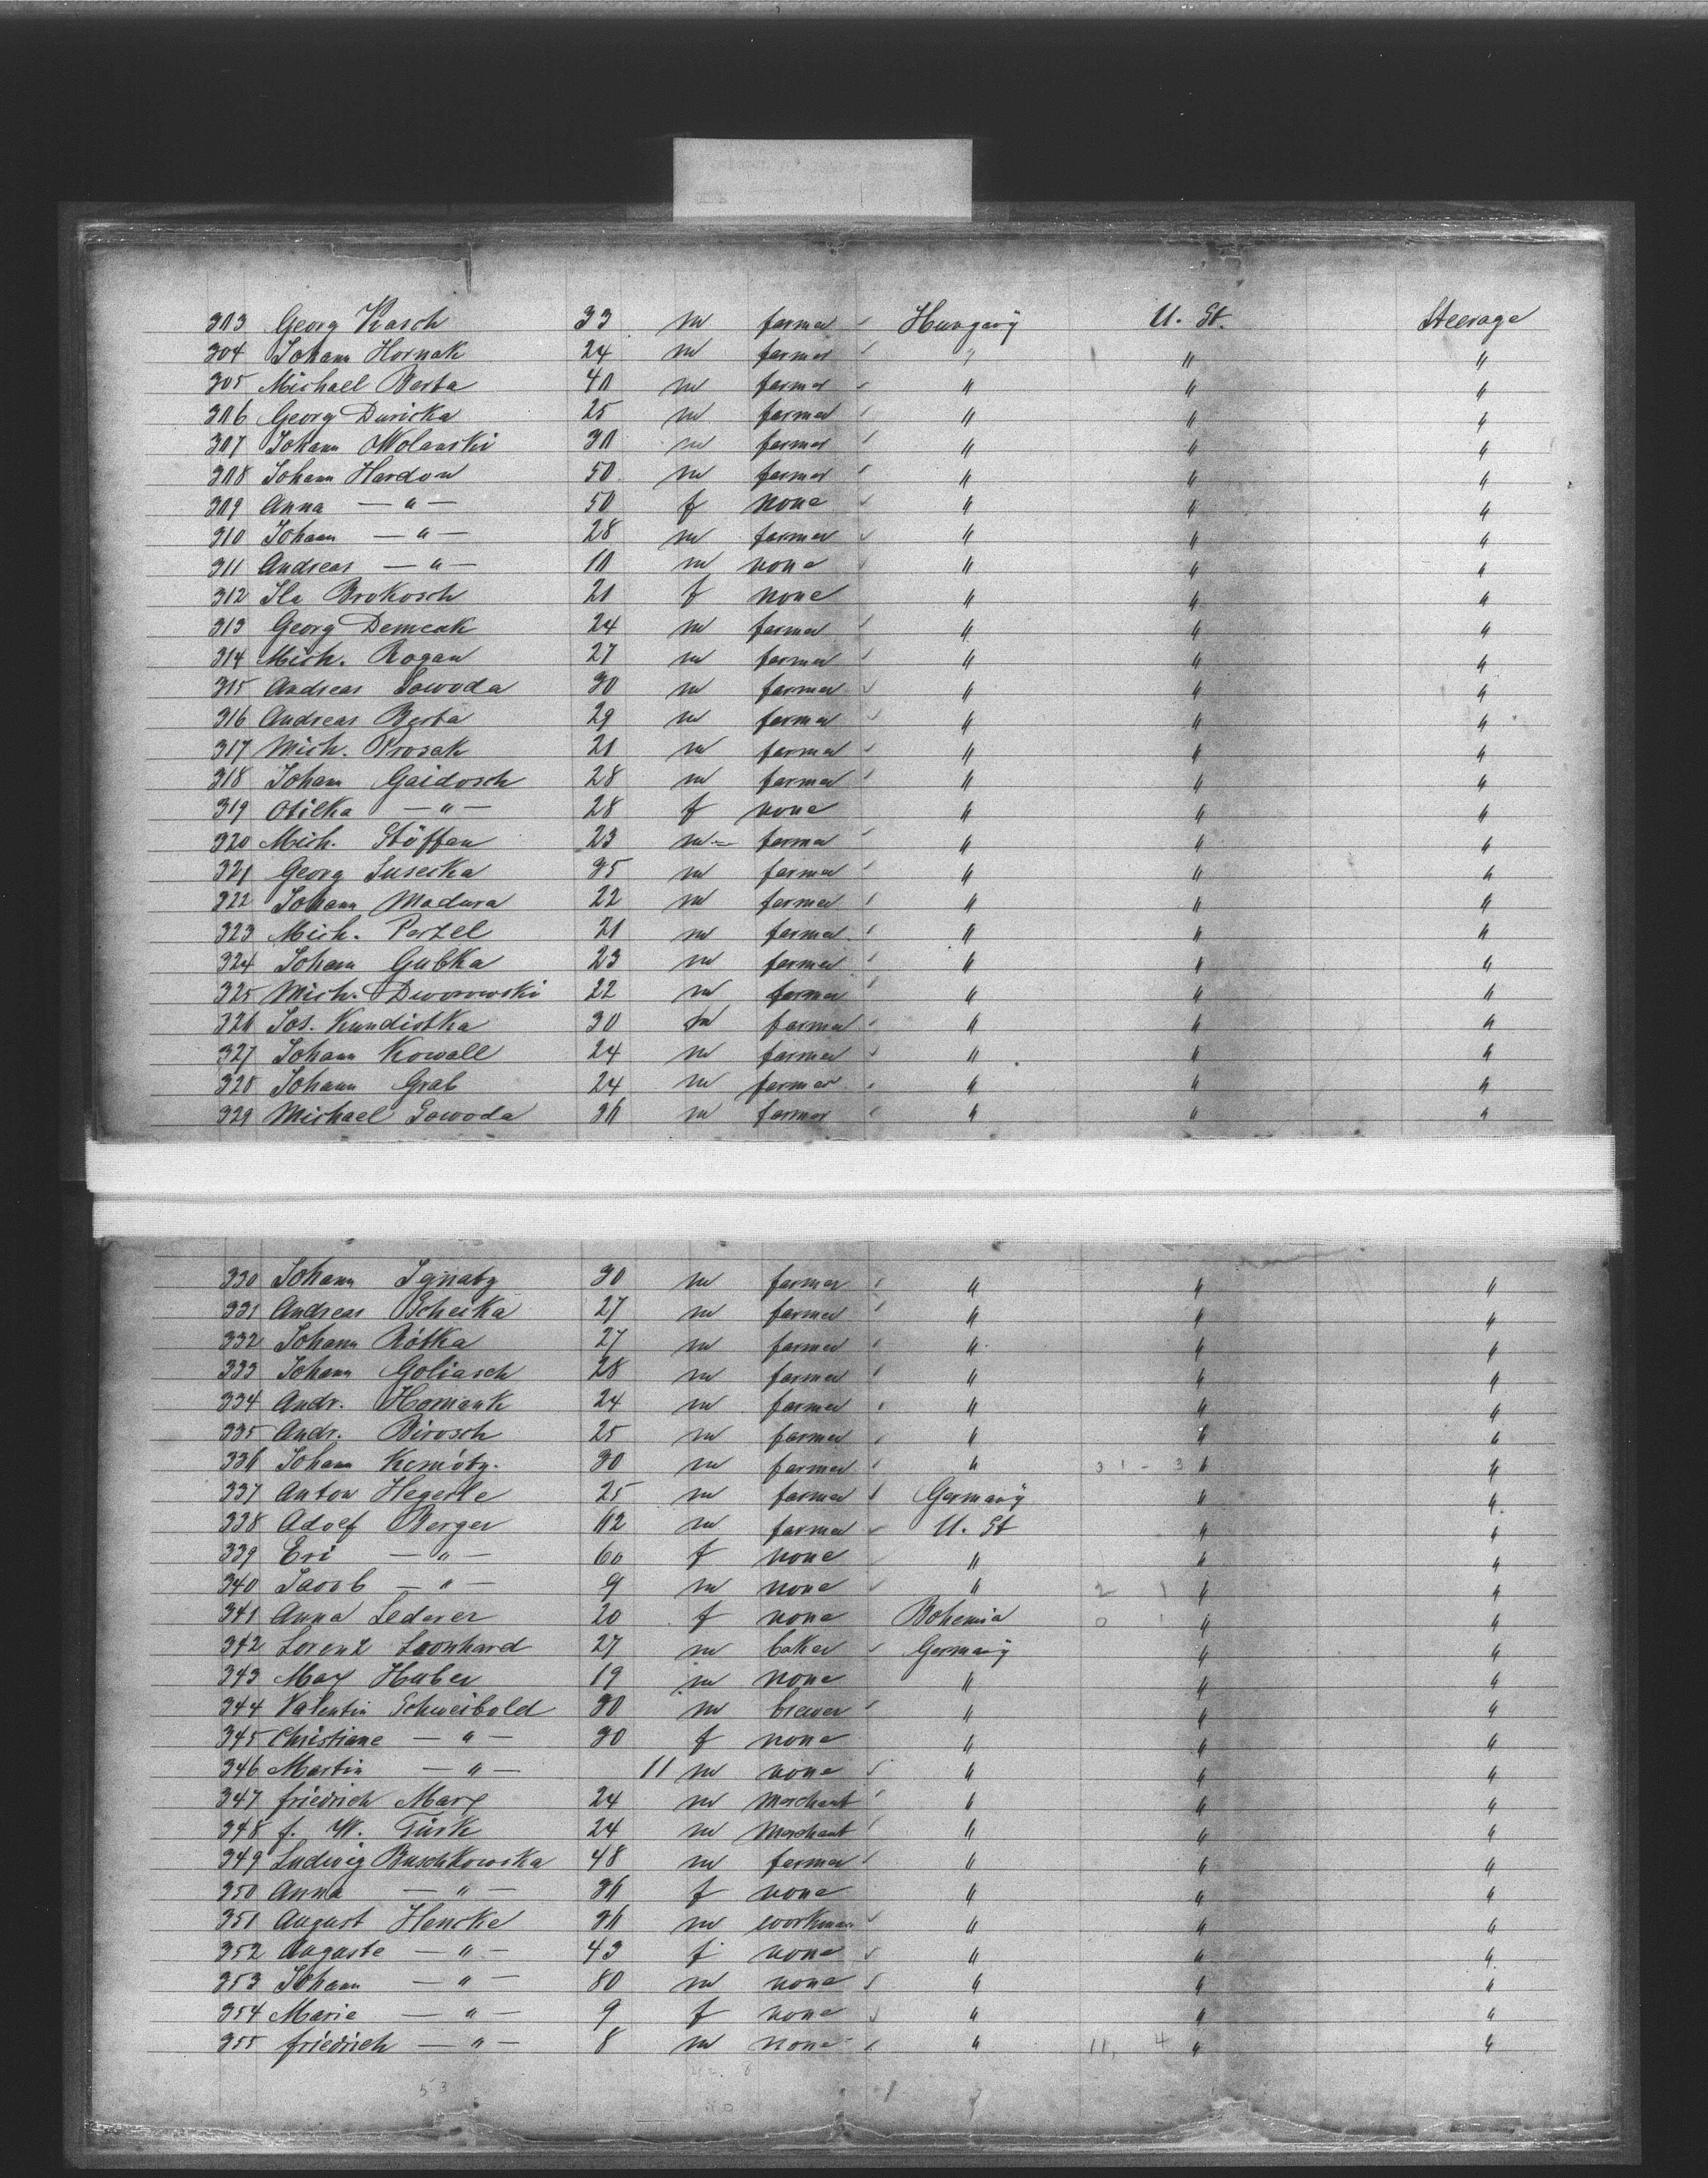 303 Georg Kasch 33 m farmer Hungary U. St. Steerage
304 Johann Hornak 24 m farmer " " "
305 Michael Berta 40 m farmer " " "
306 Georg Duricka 25 m farmer " " "
307 Johann Wolanski 30 m farmer " " "
308 Johann Hardon 50 m farmer " " "
309 Anna — " — 50 f none " " "
310 Johann — " — 28 m farmer " " "
311 Andreas — " — 10 m none " " "
312 Ila Brokosch 21 f none " " "
313 Georg Demcak 24 m farmer " " "
314 Mich. Rogan 27 m farmer " " "
315 Andreas Sowoda 30 m farmer " " "
316 Andreas Berta 29 m farmer " " "
317 Mich. Prosak 21 m farmer " " "
318 Johann Gaidosch 28 m farmer " " "
319 Otilka — " — 28 f none " " "
320 Mich. Stöffen 23 m farmer " " "
321 Georg Susecka 35 m farmer " " "
322 Johann Madura 22 m farmer " " "
323 Mich. Perzel 21 m farmer " " "
324 Johann Gubka 23 m farmer " " "
325 Mich. Dworowski 22 m farmer " " "
326 Jos. Kundistka 30 m farmer " " "
327 Johann Kowall 24 m farmer " " "
328 Johann Grab 24 m farmer " " "
329 Michael Sowoda 36 m farmer " " "
330 Johann Ignaty 30 m farmer " " "
331 Andreas Bcheika 27 m farmer " " "
332 Johann Rótka 27 m farmer " " "
333 Johann Goliasch 28 m farmer " " "
334 Andr. Hornank 24 m farmer " " "
335 Andr. Birosch 25 m farmer " " "
336 Johann Kemóty. 30 m farmer " 31 - 3 " "
337 Anton Hegerle 25 m farmer Germany " "
338 Adolf Berger 62 m farmer U. St " "
339 Eri — " — 60 f none " " "
340 Jacob — " — 9 m none " 2 1 " "
341 Anna Lederer 20 f none Bohemia 0 1 " "
342 Lorenz Leonhard 27 m baker Germany " "
343 Max Huber 19 m none " " "
344 Valentin Schweibold 30 m brewer " " "
345 Christiane — " — 30 f none " " "
346 Martin — " — 11 m none " " "
347 friedrich Marx 24 m Merchant " " "
348 f. W. Türk 24 m Merchant " " "
349 Ludwig Buschkowska 48 m farmer " " "
350 Anna — " — 36 f none " " "
351 August Hencke 36 m workman " " "
352 Auguste — " — 43 f none " " "
353 Johann — " — 80 m none " " "
354 Marie — " — 9 f none " " "
355 friedrich — " — 8 m none " 11, 4 " "
53